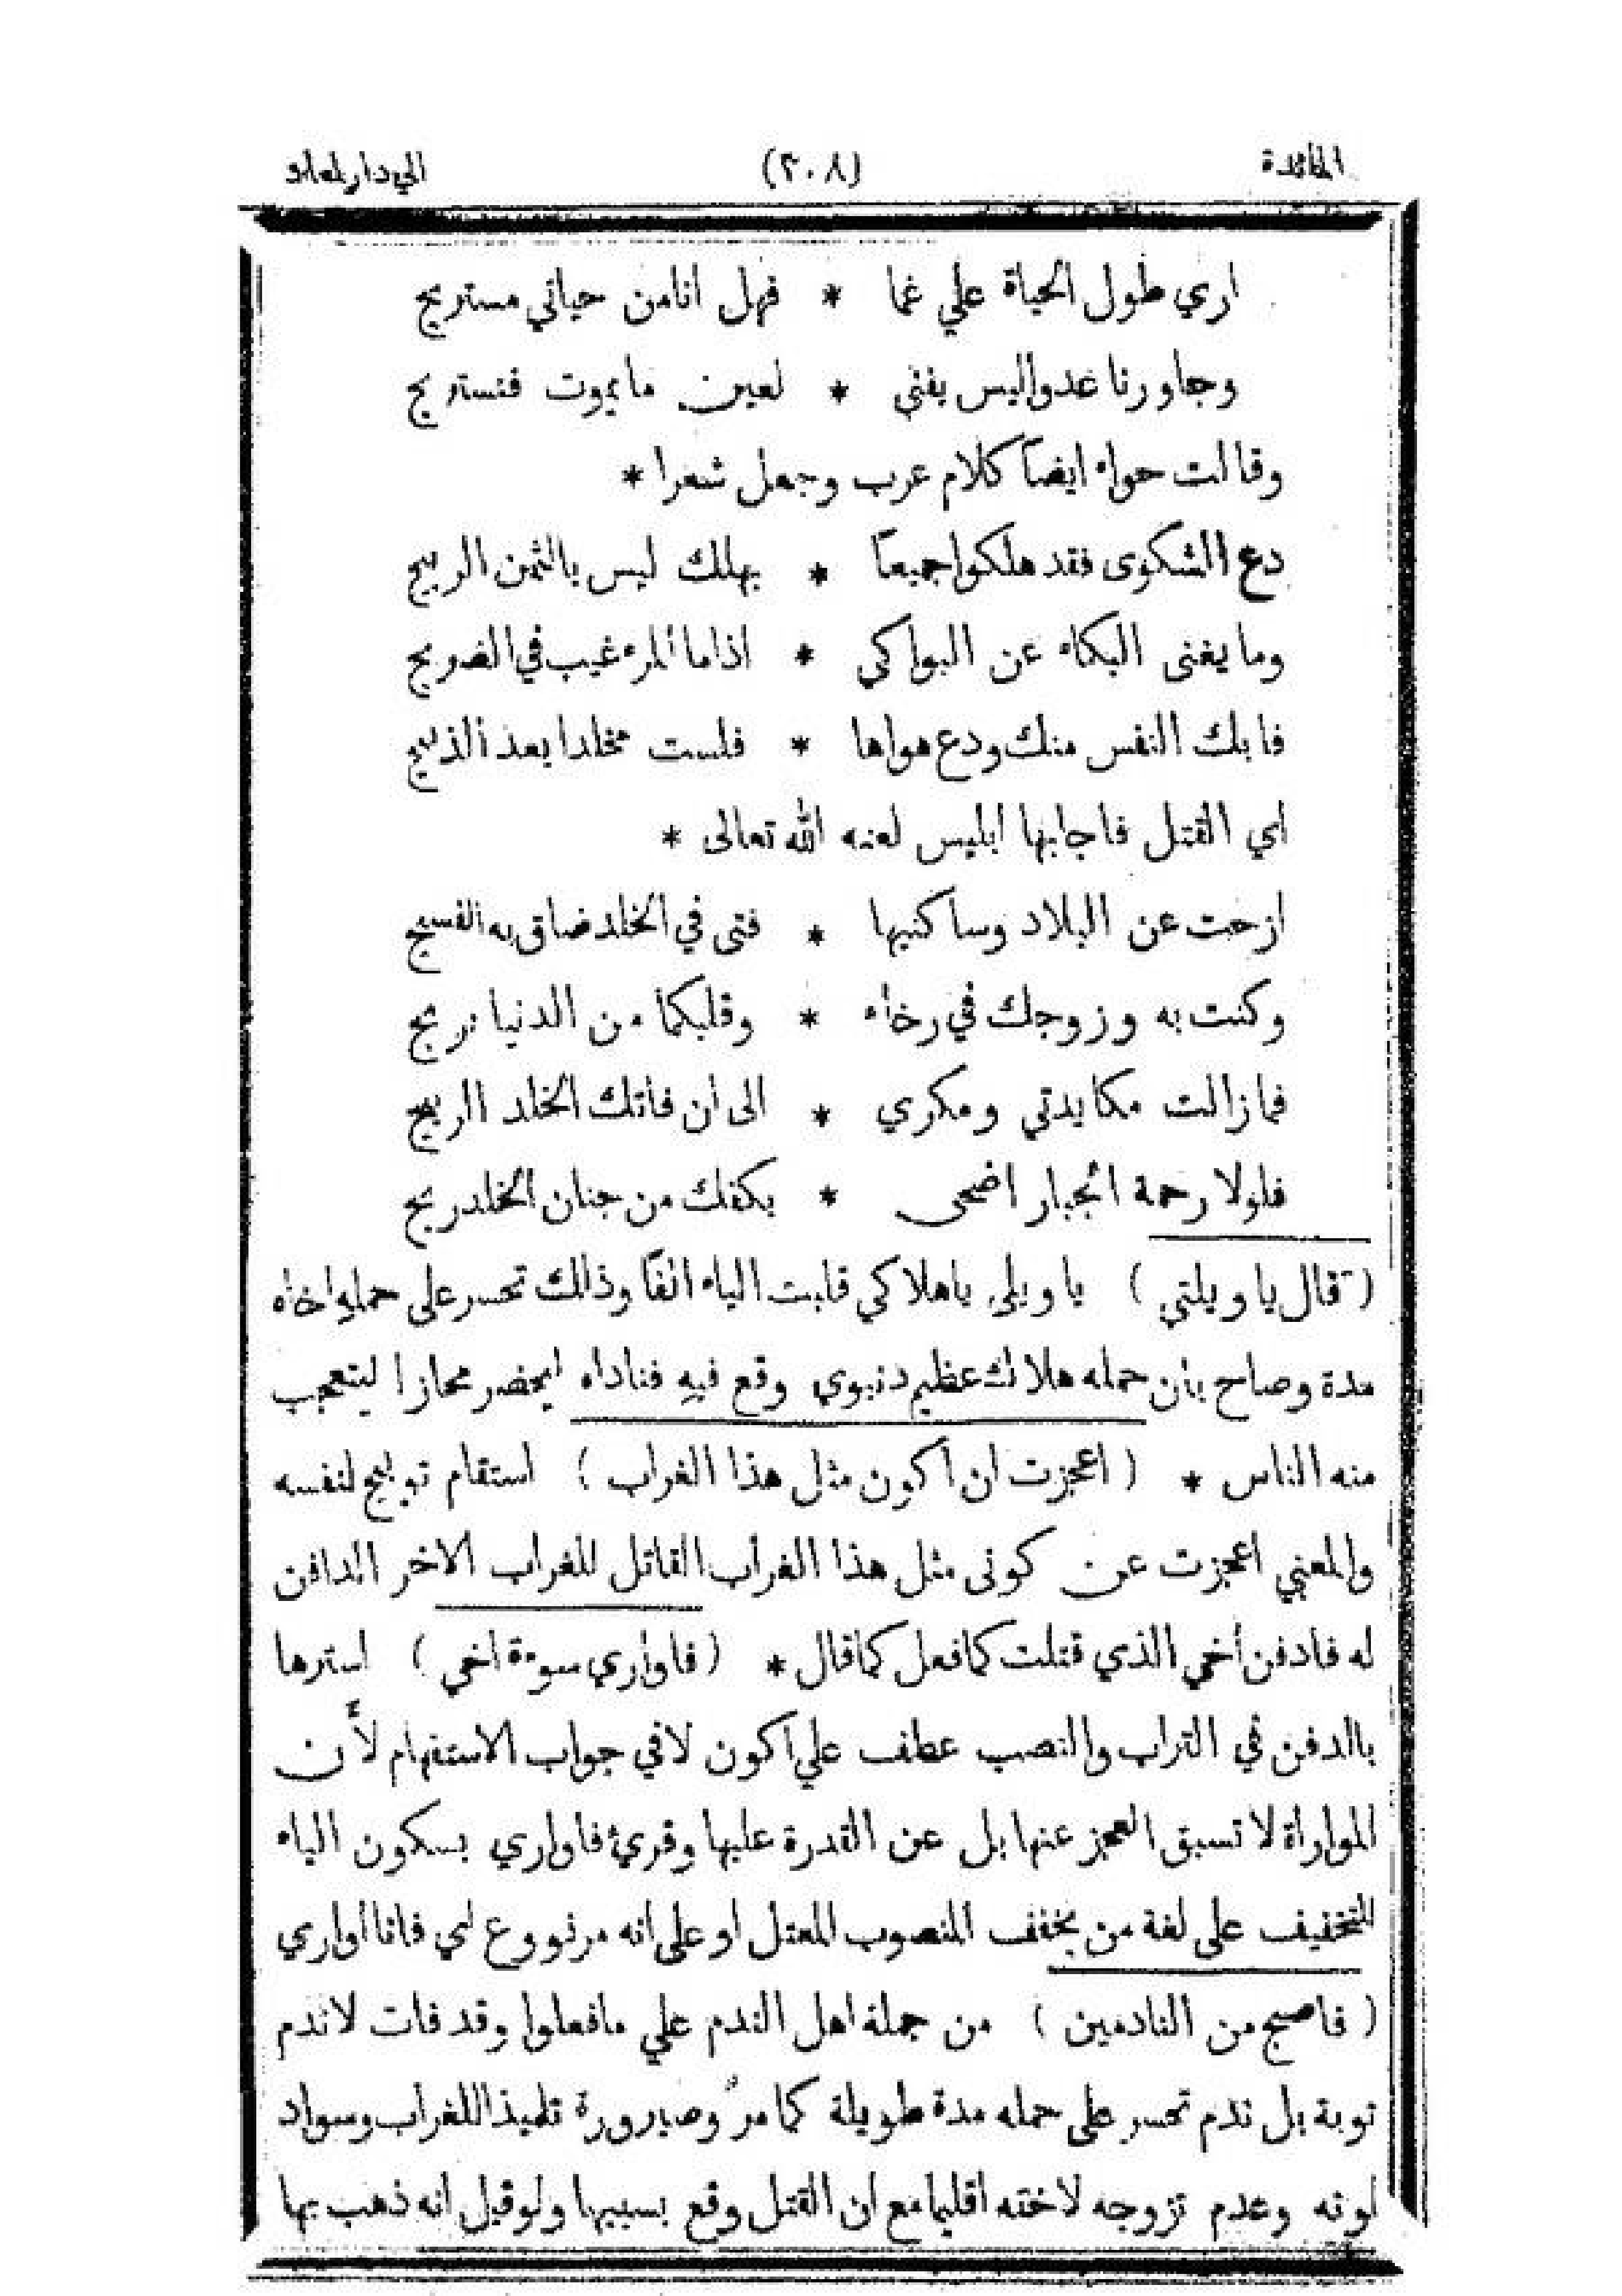 المائدة (٣٠٨) الي دار المعاد
اري طول الحياة علي غما * فهل انا من حياتي مستريح
وجاورنا عدوا ليس يفنى * لعين ما يموت فنستريح
وقالت حواء ايضاً كلام عرب وجعل شعرا *
دع الشكوى فقد هلكوا جميعاً * بهلك ليس بالثمن الربيح
وما يغنى البكاء عن البواكي * اذا ما المرء غيب في الضريح
فابك النفس منك ودع هواها * فلست مخلدا بعد الذبيح
اي القتل فاجابها ابليس لعنه الله تعالى *
ازحت عن البلاد وساكنيها * فتى في الخلد ضاق به الفسيح
وكنت به وزوجك في رخاء * وقلبكما من الدنيا نريح
فما زالت مكايدتي ومكري * الى ان فاتك الخلد الربيح
فلولا رحمة الجبار اضحى * بكفك من جنان الخلد ريح
( قال يا ويلتي ) يا ويلي يا هلاكي قلبت الياء الفاً وذلك تحسر على حمله اخاه
مدة وصاح بان حمله هلاك عظيم دنيوي وقع فيه فناداه ليحضر مجازا ليتعجب
منه الناس * ( اعجزت ان أكون مثل هذا الغراب ) استفهام توبيخ لنفسه
والمعني اعجزت عن كونى مثل هذا الغراب القاتل للغراب الاخر الدافن
له فادفن أخي الذي قتلت كما فعل كما قال * ( فاواري سوءة اخي ) استرها
بالدفن في التراب والنصب عطف علي أكون لا في جواب الاستفهام لأن
المواراة لا تسبق العجز عنها بل عن القدرة عليها وقرئ فاواري بسكون الياء
للتخفيف على لغة من يخفف المنصوب المعتل او على انه مرفووع اي فانا اواري
( فاصبح من النادمين ) من جملة اهل الندم علي ما فعلوا وقد فات لا ندم
توبة بل ندم تحسر على حمله مدة طويلة كما مرّ وصيرورة تلميذا للغراب وسواد
لونه وعدم تزوجه لاخته اقليما مع ان القتل وقع بسببها ولو قيل انه ذهب بها